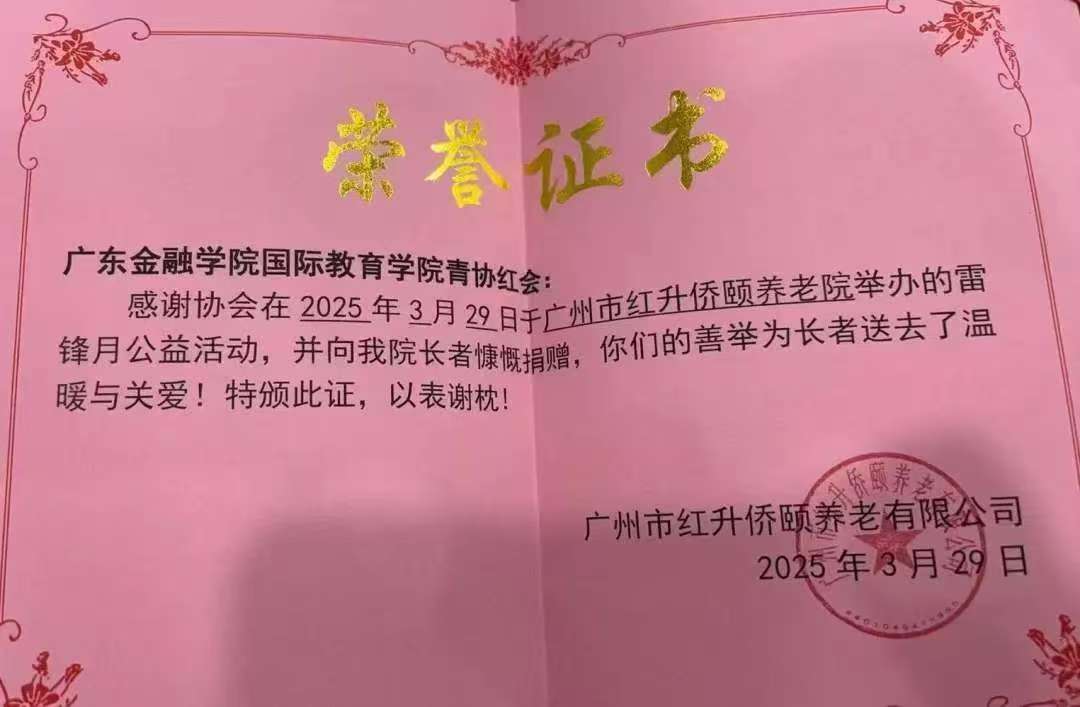 荣誉证书
广东金融学院国际教育学院青协红会：
感谢协会在 2025 年 3 月 29 日于广州市红升侨颐养老院举办的雷
锋月公益活动，并向我院长者慷慨捐赠，你们的善举为长者送去了温
暖与关爱！特颁此证，以表谢枕！
广州市红升侨颐养老有限公司
2025 年 3 月 29 日
广州市红升侨颐养老有限公司